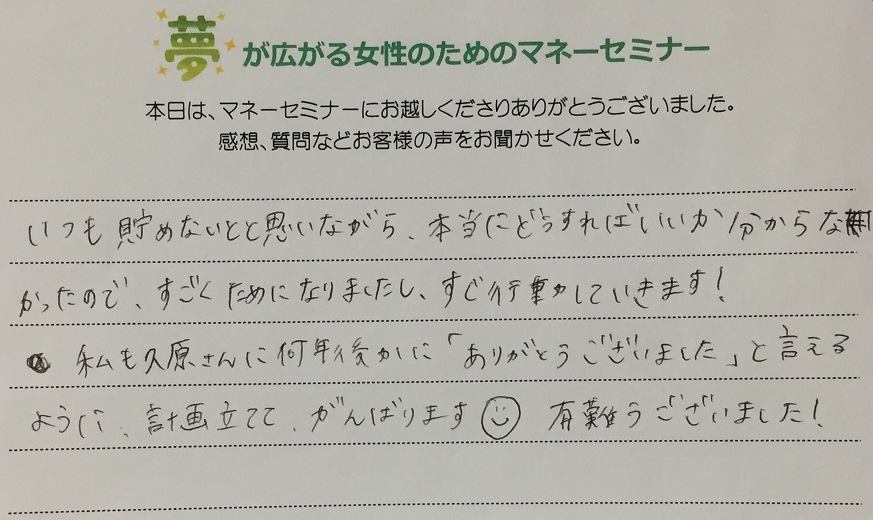 夢が広がる女性のためのマネーセミナー
本日は、マネーセミナーにお越しくださりありがとうございました。
感想、質問などお客様の声をお聞かせください。
いつも貯めないとと思いながら、本当にどうすればいいか分からな
かったので、すごくためになりましたし、すぐ行動していきます!
私も久原さんに何年後かに「ありがとうございました」と言える
ように、計画立てて、がんばります☺ 有難うございました!